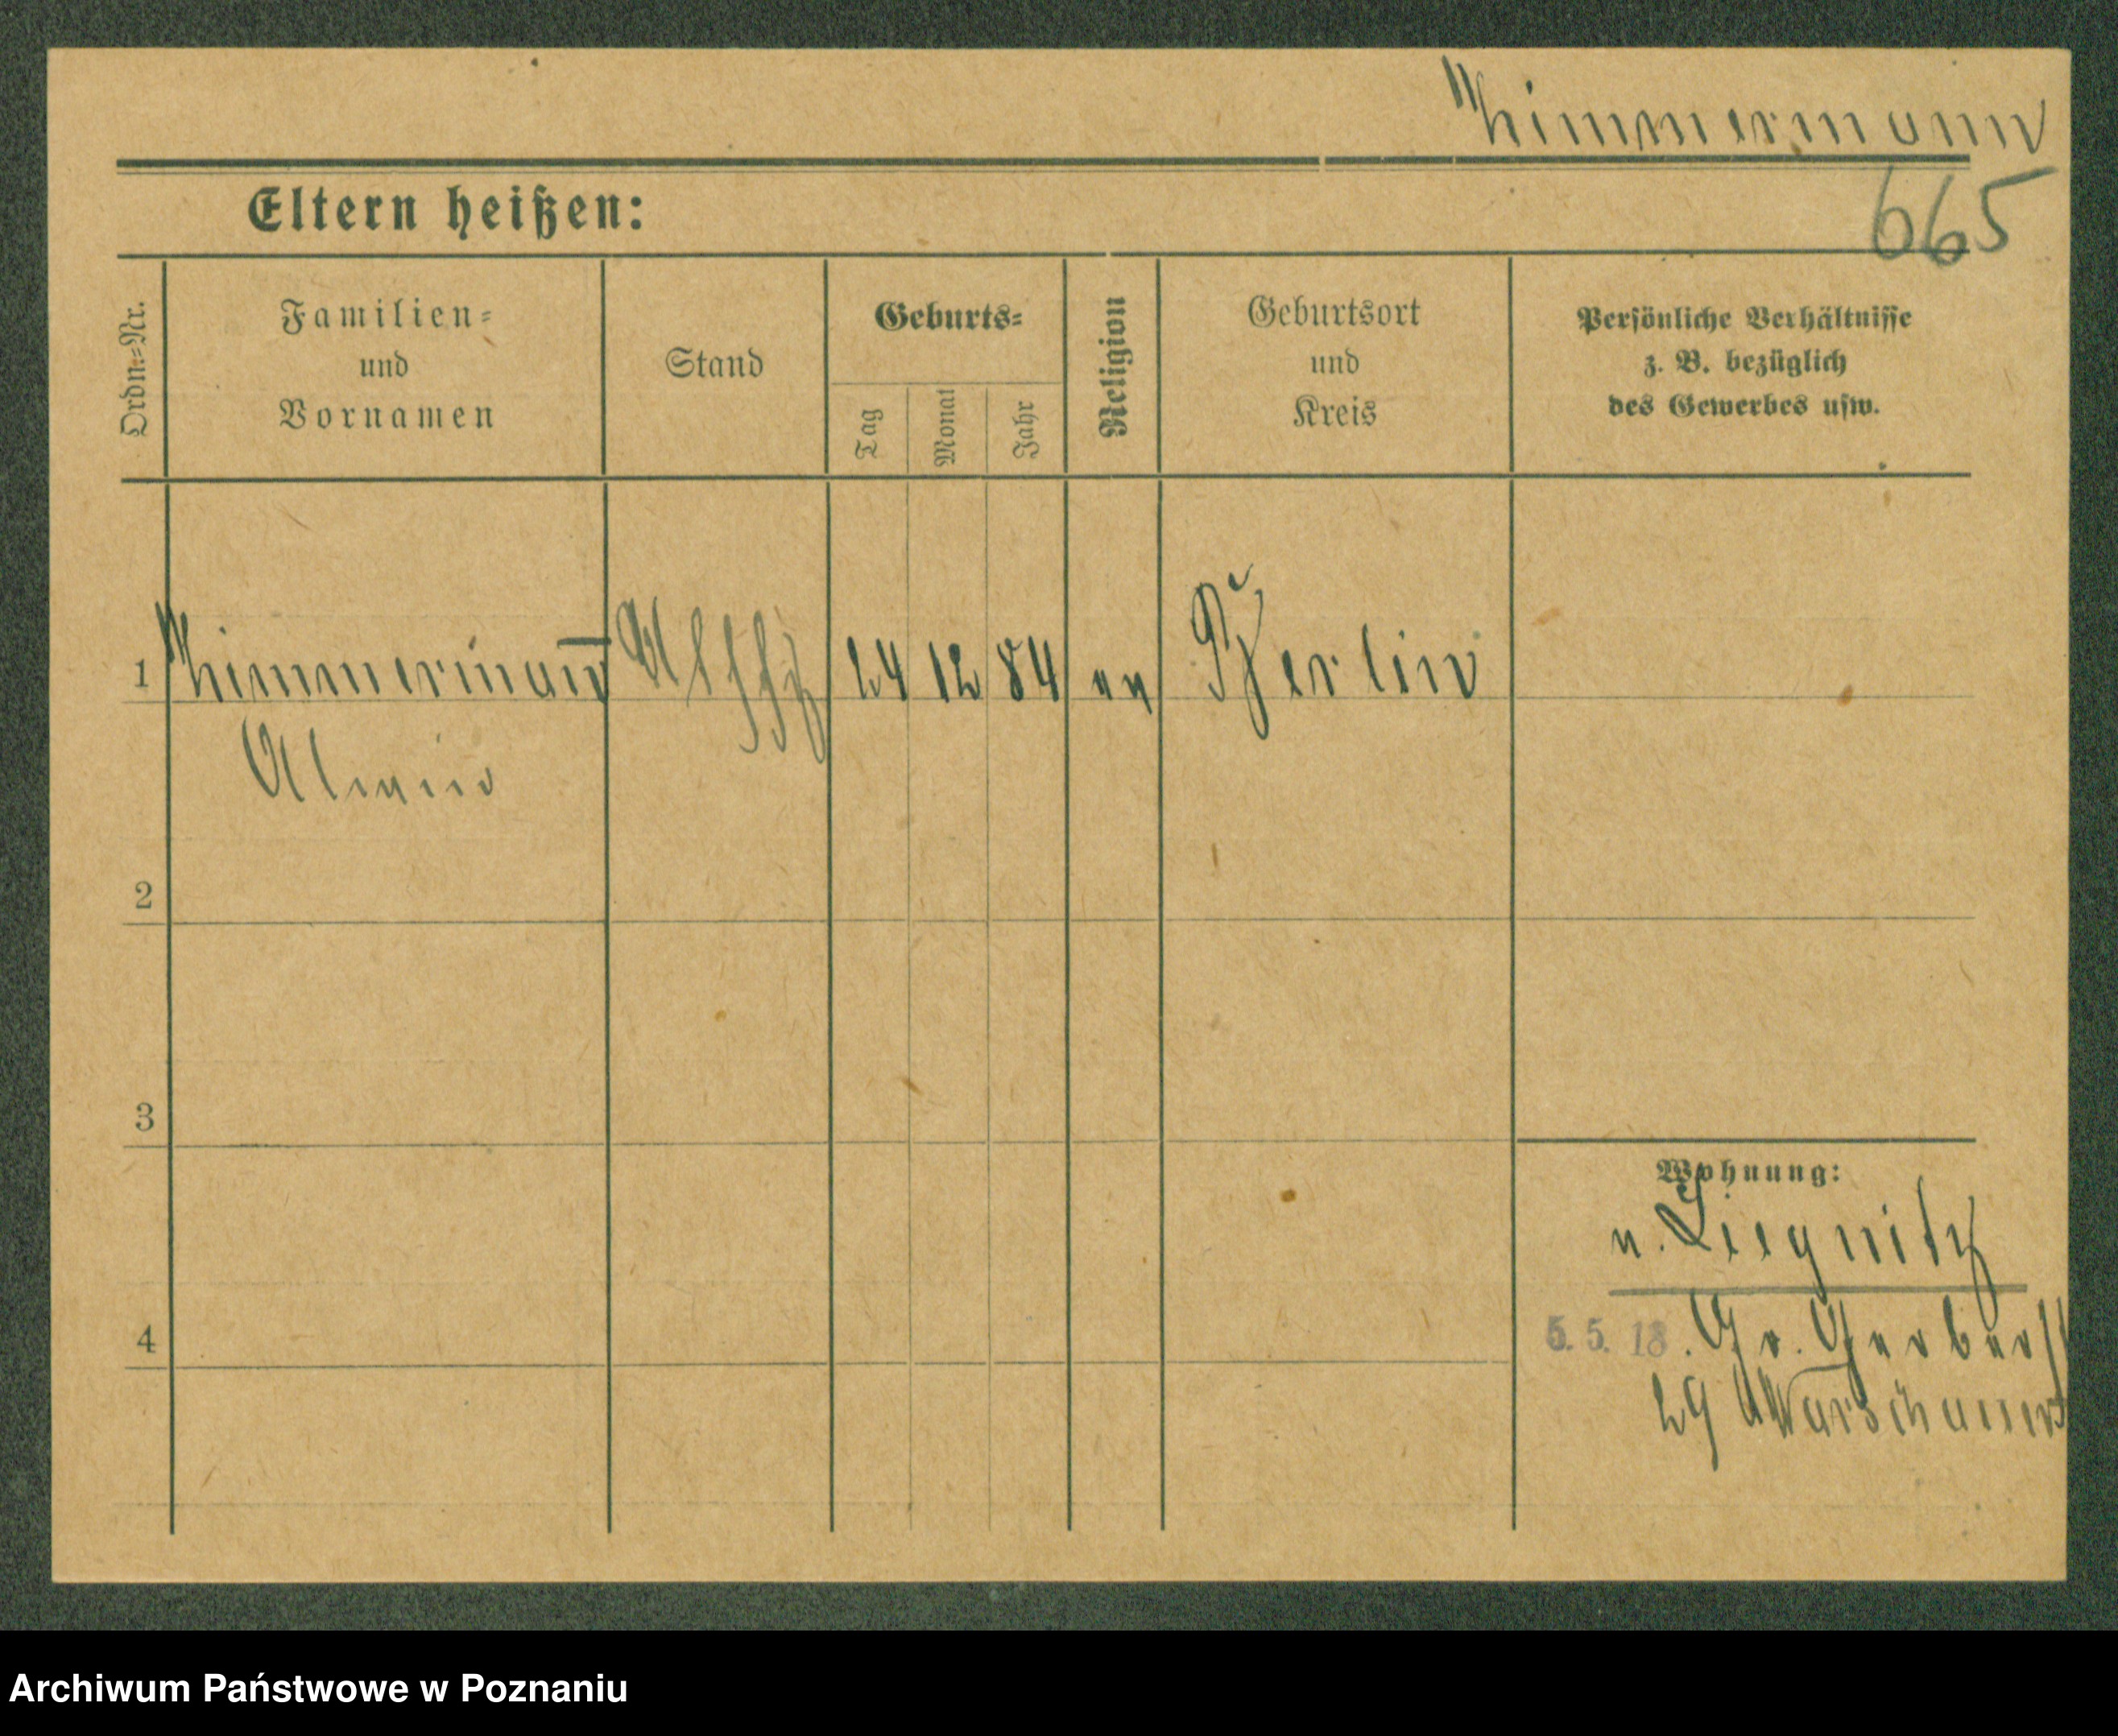 Zimmermann
Eltern heißen:
665
Ordn.=Nr.
Familien=
und
Vornamen
Stand
Geburts=
Tag
Monat
Jahr
Religion
Geburtsort
und
Kreis
Persönliche Verhältnisse
z. B. bezüglich
des Gewerbes usw.
1 Zimmermann̅ 24 12 84 ev Berlin
Alwin
2
3
4
Wohnung:
n. Liegnitz
5. 5. 18. Gr. Gerberst
29 Warschauer
Archiwum Państwowe w Poznaniu